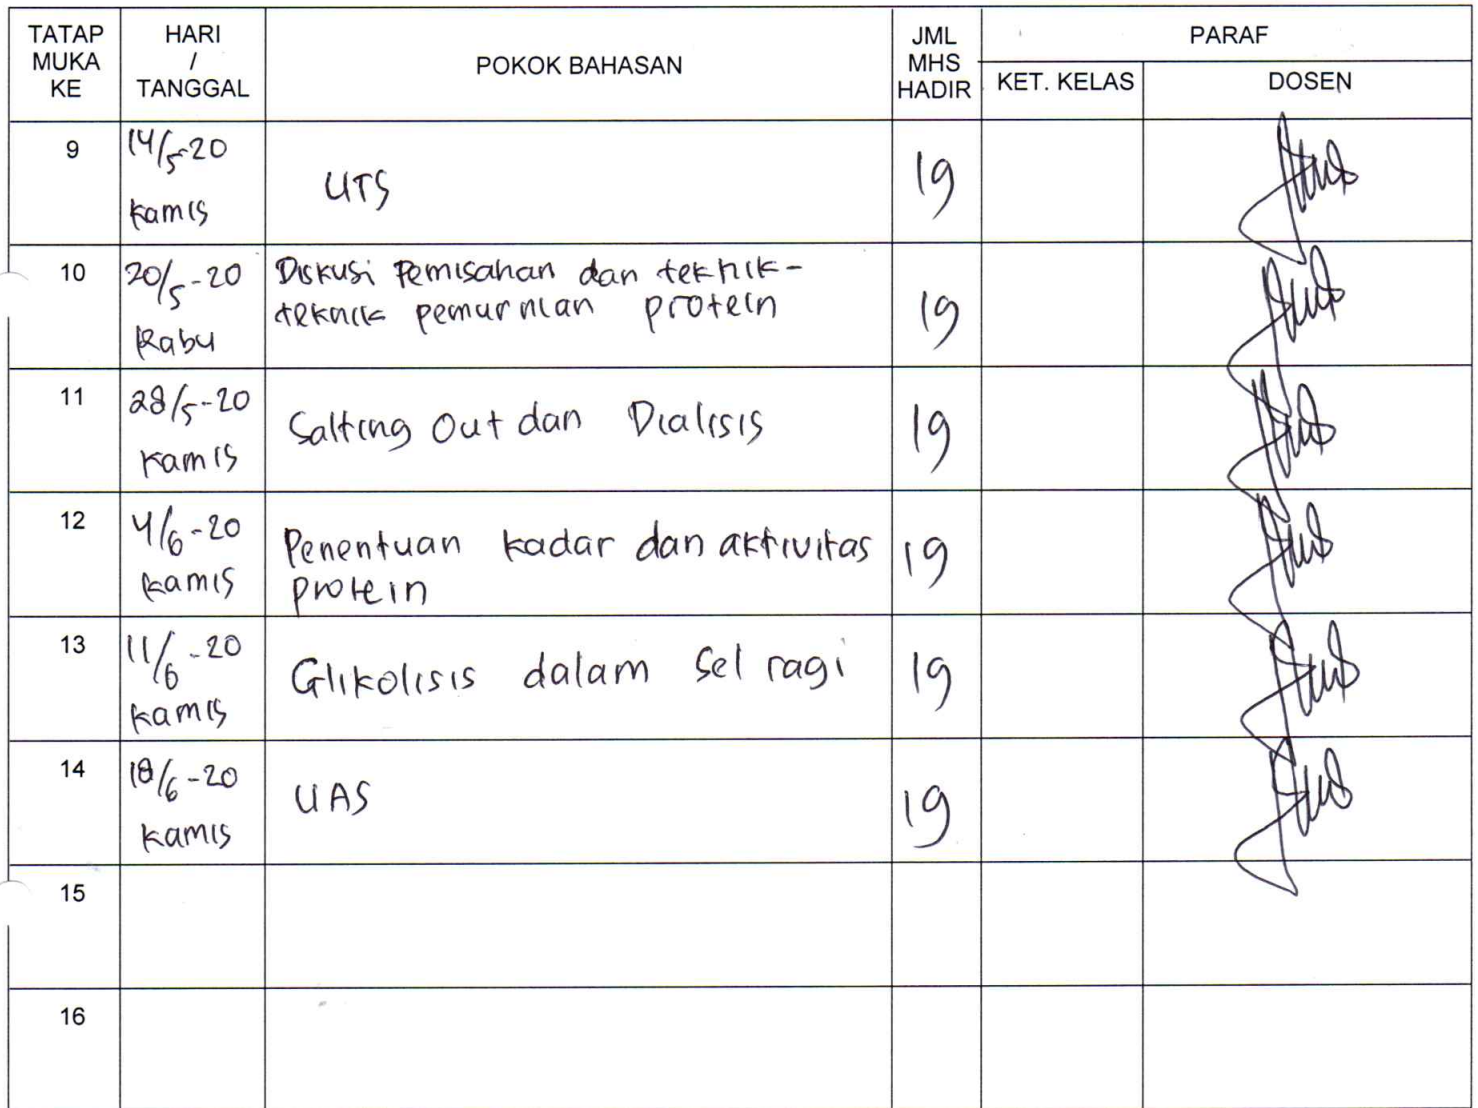 TATAP MUKA KE
HARI / TANGGAL
POKOK BAHASAN
JML MHS HADIR
PARAF
KET. KELAS
DOSEN
9
14/5-20
Kamis
UTS
19
10
20/5-20
Rabu
Diskusi Pemisahan dan teknik-
teknik pemurnian protein
19
11
28/5-20
Kamis
Salting Out dan Dialisis
19
12
4/6-20
Kamis
Penentuan kadar dan aktivitas
protein
19
13
11/6-20
Kamis
Glikolisis dalam Sel ragi
19
14
18/6-20
Kamis
UAS
19
15
16